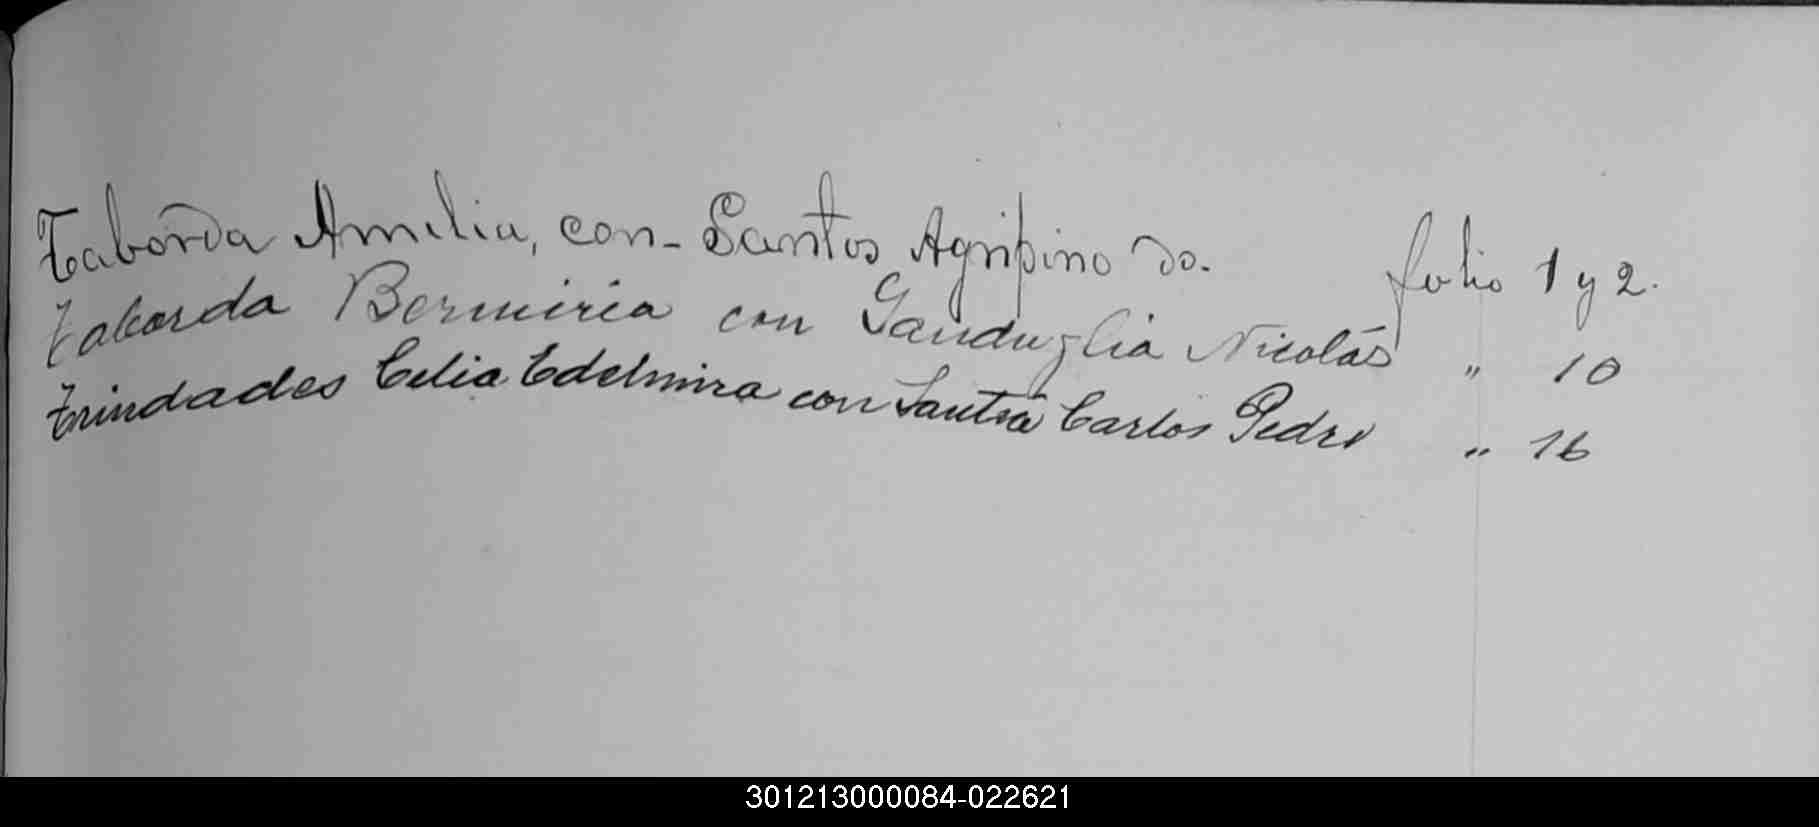 Taborda Amelia, con- Santos Agripino do. folio 1 y 2.
Taborda Bermiria con Sanduglia Nicolás " 10
Trindades Celia Edelmira con Carlos Pedro " 16
301213000084-022621